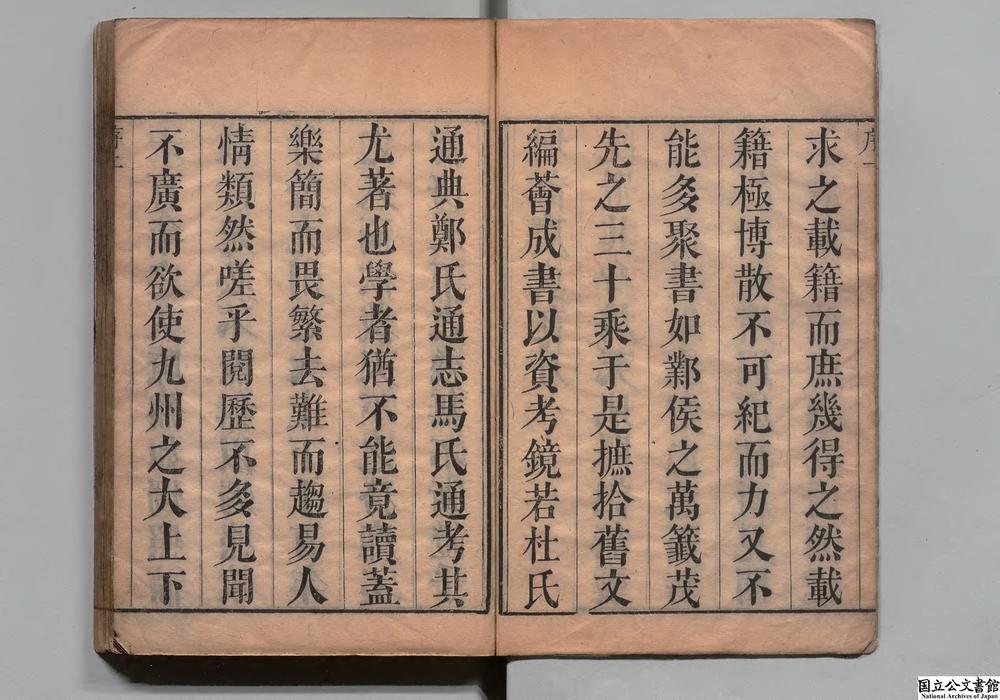 求之載籍而庶幾得之然載
籍極博散不可紀而力又不
能多聚書如鄴侯之萬籤茂
先之三十乘于是摭拾舊文
編薈成書以資考鏡若杜氏
通典鄭氏通志馬氏通考其
尤著也學者猶不能竟讀蓋
樂簡而畏繁去難而趨易人
情類然嗟乎閱歷不多見聞
不廣而欲使九州之大上下
国立公文書館
National Archives of Japan